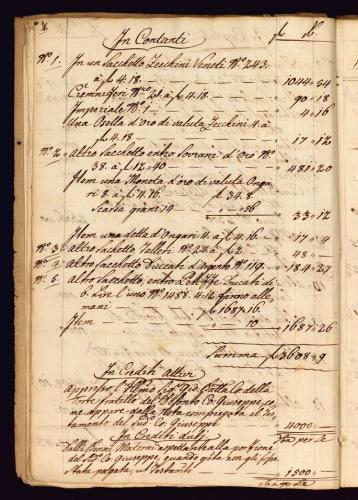 In Contanti
Nro 1. In un Sacchetto Zecchini Veneti Nro 243.
à f 4.18. — 1044 " 54
Cremniseri Nro à f 4.18. — 90 " 18
Imperiale Nro 1 — 4 " 16
Una Osella d'oro di valuta Zecchini 4. à
f 4.18 — 17 " 12
Nro 2. Altro Sacchetto entro Sovrani d'Oro Nro
38. à f 12 " 40 — 481 " 20
Item una Moneta d'oro di valuta Onga-
ri 8. à f 4.16. f 34.8.
Scarsa grani 14 — " 56
33 " 12
Item una detta d'Ongari 4. à f 4.16. — 17 " 4
Nro 3. Altro Sachetto Talleri Nro 24 à f 2. — 48 "
Nro 4. Altro Sacchetto Ducati d'argento Nro 119. — 184 " 27
Nro 5. Altro Sacchetto entro Ducati di
l'uno Nro 1488. 4.12. fanno alle-
mani — f 1687.16.
Item — " 10 — 1687 " 26
Summa f 3608 " 9
In Crediti Attivi
appresso l'Illmo Sigr Gio: Batta Co: della
Torre fratello del Defonto Co: Giuseppe, co-
me appare dalla Nota compiegata al Tes-
tamento del Sudo Co: Giuseppe — 4000 "
In Crediti
Dalli Beni Materni aspettante alla porzione
del Sudo Co: Giuseppe, quando gota non gli fosse
stata pagata, ut Testamto — 1500 "